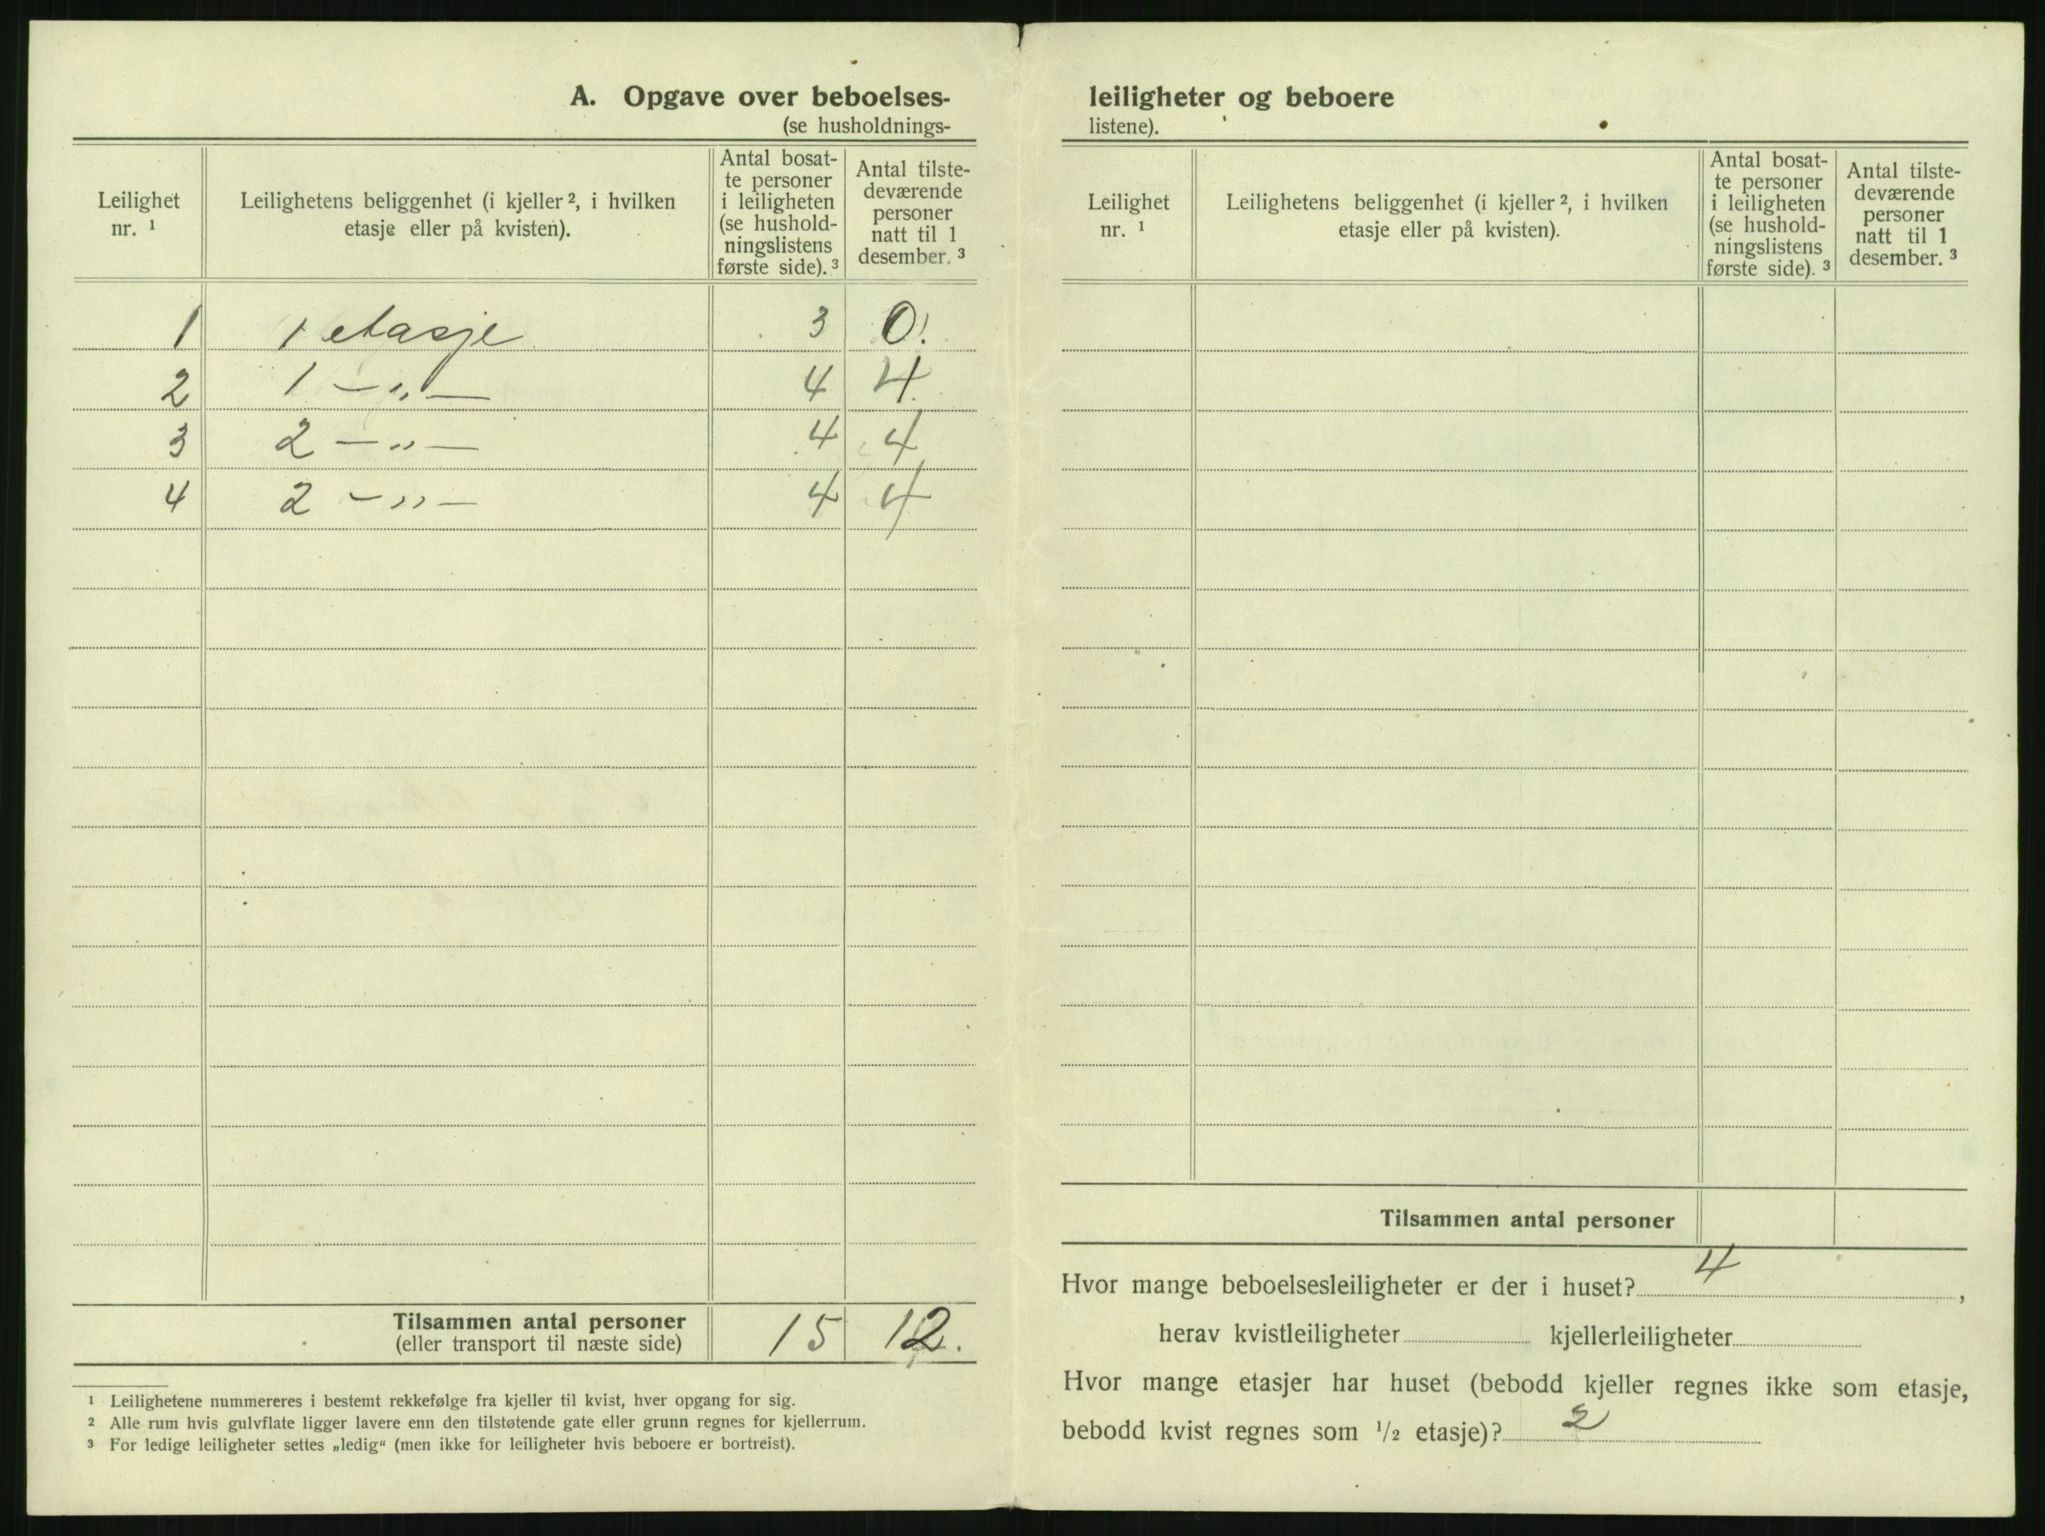 A. Opgave over beboelses-
(se husholdnings-
Leilighet nr. ¹
Leilighetens beliggenhet (i kjeller ², i hvilken etasje eller på kvisten).
Antal bosat-
te personer
i leiligheten
(se hushold-
ningslistens
første side). ³
Antal tilste-
deværende
personer
natt til 1
desember. ³
1 1 etasje 3 0!
2 1 — „ — 4 4
3 2 — „ — 4 4
4 2 — „ — 4 4
Tilsammen antal personer 15 12.
(eller transport til næste side)
¹ Leilighetene nummereres i bestemt rekkefølge fra kjeller til kvist, hver opgang for sig.
² Alle rum hvis gulvflate ligger lavere enn den tilstøtende gate eller grunn regnes for kjellerrum.
³ For ledige leiligheter settes „ledig“ (men ikke for leiligheter hvis beboere er bortreist).
leiligheter og beboere
listene).
Leilighet nr. ¹
Leilighetens beliggenhet (i kjeller ², i hvilken etasje eller på kvisten).
Antal bosat-
te personer
i leiligheten
(se hushold-
ningslistens
første side). ³
Antal tilste-
deværende
personer
natt til 1
desember. ³
Tilsammen antal personer
Hvor mange beboelsesleiligheter er der i huset? 4 ,
herav kvistleiligheter kjellerleiligheter
Hvor mange etasjer har huset (bebodd kjeller regnes ikke som etasje,
bebodd kvist regnes som ½ etasje)? 2